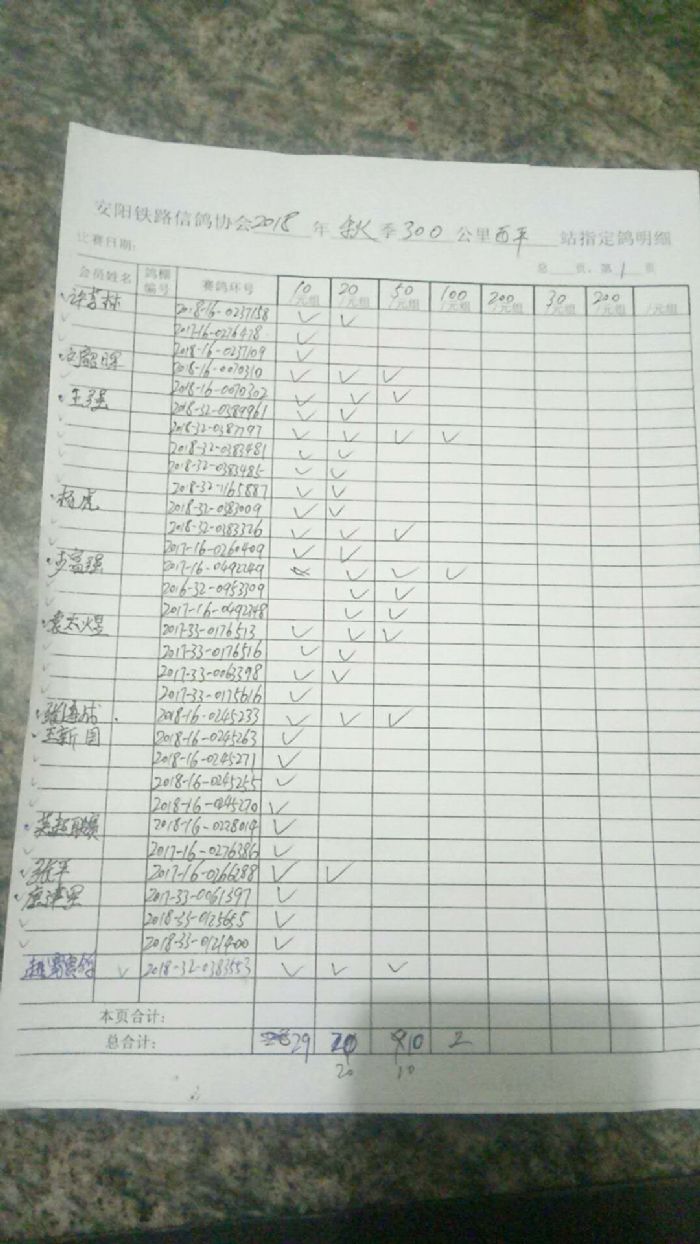 安阳铁路信鸽协会2018年秋季300公里西平站指定鸽明细
比赛日期: 总 页, 第1页
会员姓名 鸽棚编号 赛鸽环号 10/元组 20/元组 50/元组 100/元组 200/元组 30/元组 200/元组 /元组
2018-16-0237158 ✓ ✓
2017-16-0276478 ✓
2018-16-0237109 ✓
2018-16-0070310 ✓ ✓ ✓
2018-16-0070302 ✓ ✓ ✓
王强 2018-32-0389961 ✓ ✓
2018-32-0387797 ✓ ✓ ✓ ✓
2018-32-0383481 ✓ ✓
2018-32-0383485 ✓ ✓
2018-32-1165887 ✓ ✓
杨虎 2018-32-0383009 ✓ ✓
2018-32-0383326 ✓ ✓ ✓
2017-16-0260409 ✓ ✓
2017-16-0492249 ✓ ✓ ✓
2016-32-0953309 ✓ ✓
2017-16-0492248 ✓ ✓
2017-33-0176513 ✓ ✓ ✓
2017-33-0176516 ✓ ✓
2017-33-0063398 ✓ ✓
2017-33-0175616 ✓
2018-16-0245233 ✓ ✓ ✓
王新国 2018-16-0245263 ✓
2018-16-0245271 ✓
2018-16-0245255 ✓
2018-16-0245270 ✓
2018-16-0228014 ✓
2017-16-0276386 ✓
张平 2017-16-0266288 ✓ ✓
2017-33-0061397 ✓
2018-33-0125655 ✓
2018-33-0121400 ✓
✓ 2018-32-0383553 ✓ ✓ ✓
本页合计:
总合计: 29 20 10 2
20 10